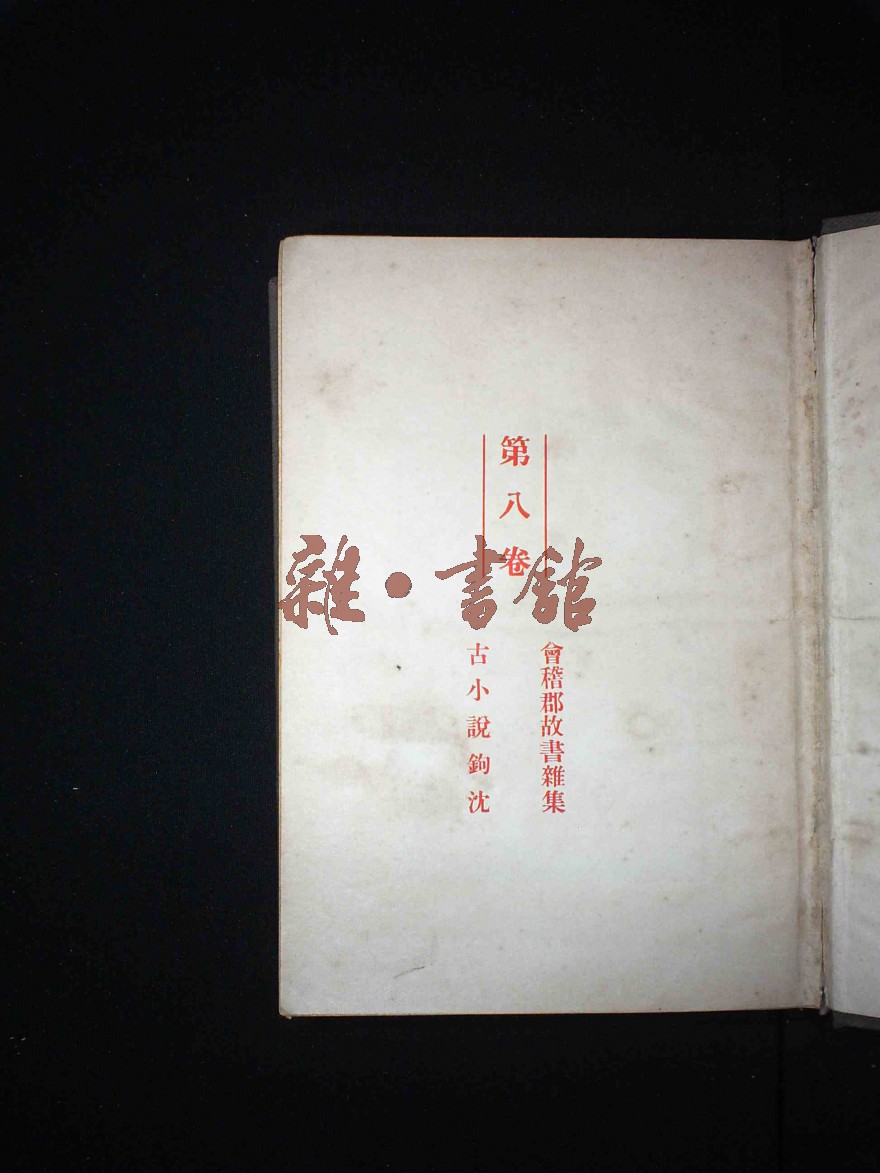 第八卷
會稽郡故書雜集
古小說鉤沈
雜·書館